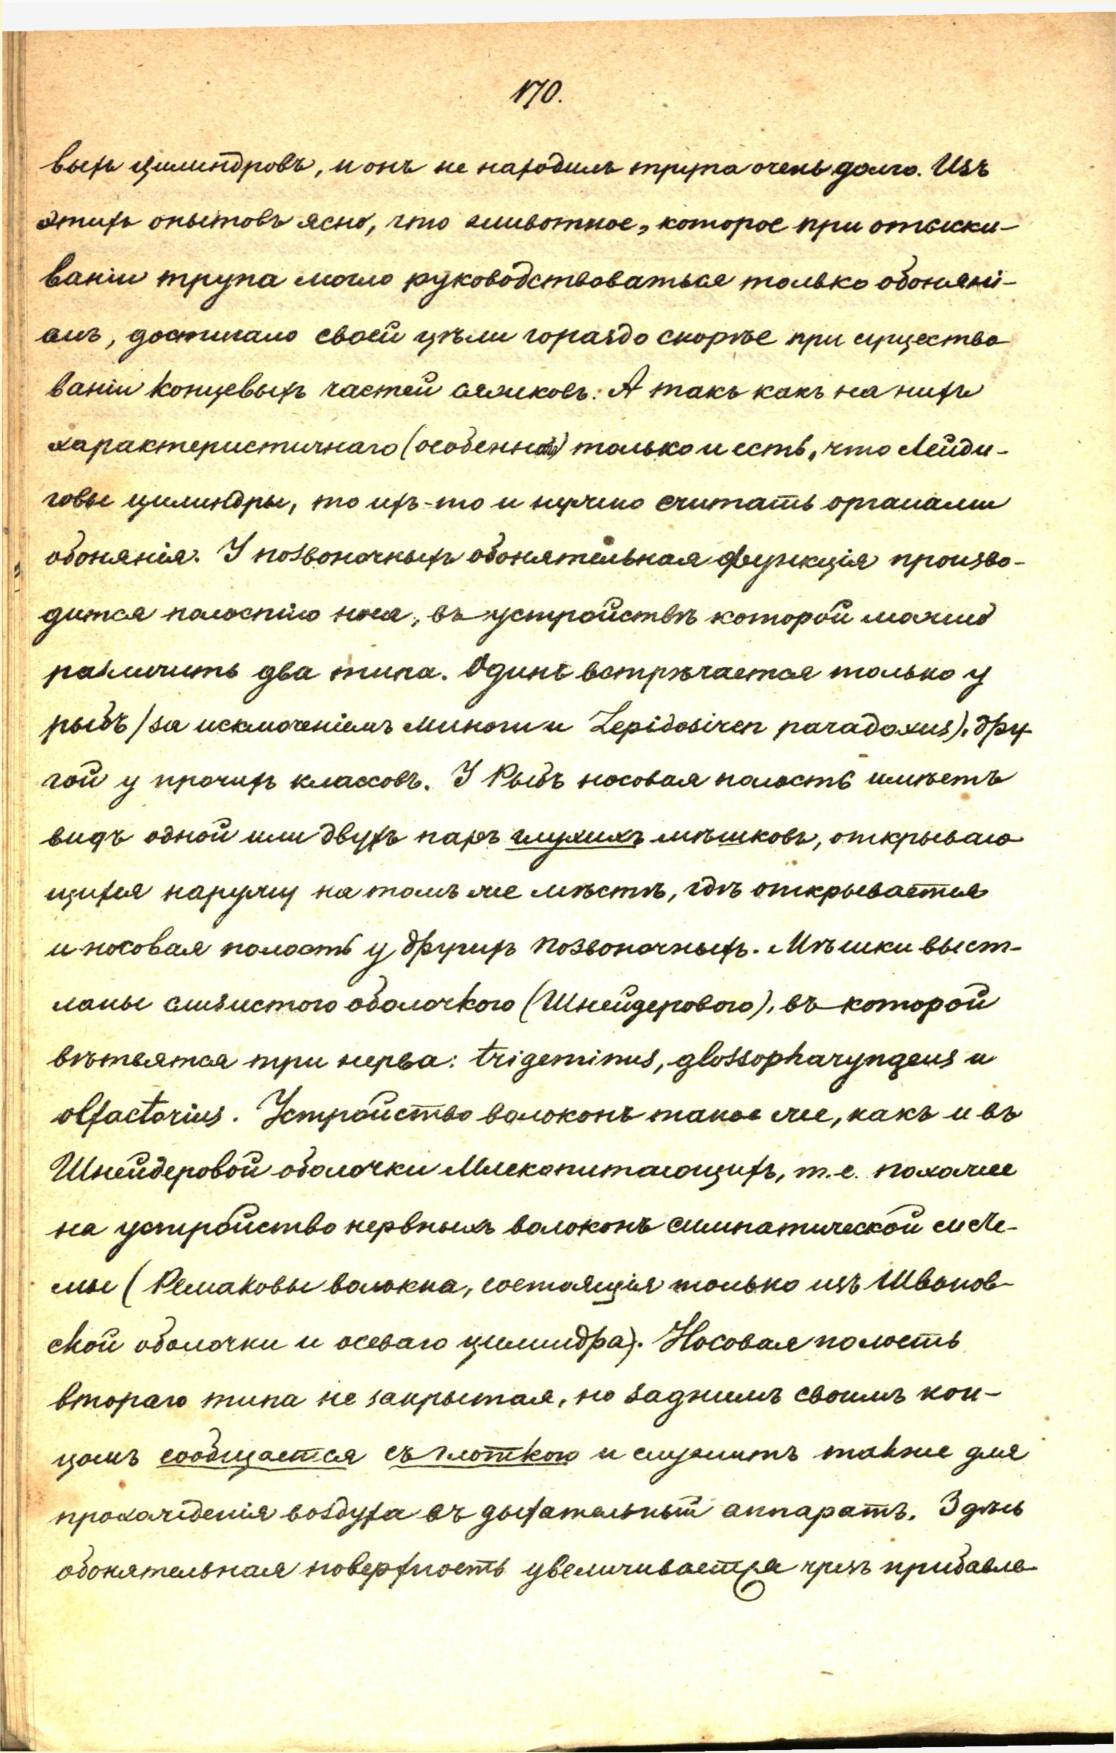 170.
выхъ цилиндровъ, и онъ не находилъ трупа очень долго. Изъ
этихъ опытовъ ясно, что животное, которое при отыски-
ваніи трупа могло руководствоваться только обоняні-
емъ, достигало своей цѣли гораздо скорѣе при существо
ваніи концевыхъ частей сяжковъ. А такъ какъ на нихъ
характеристичнаго (особеннаго) только и есть, что Лейди-
говы цилиндры, то ихъ-то и нужно считать органами
обонянія. У позвоночныхъ обонятельная функція произво-
дится полостію носа, въ устройствѣ которой можно
различить два типа. Одинъ встрѣчается только у
рыбъ (за исключеніемъ Миноги и Lepidosiren paradoxus), дру-
гой у прочихъ классовъ. У Рыбъ носовая полость имѣетъ
видъ одной или двухъ паръ глухихъ мѣшковъ, открываю
щихся наружу на томъ же мѣстѣ, гдѣ открывается
и носовая полость у другихъ позвоночныхъ. Мѣшки выст-
ланы слизистого оболочкого (Шнейдерового), въ которой
вѣтвятся три нерва: trigeminus, glossopharyngeus и
olfactorius. Устройство волоконъ такое же, какъ и въ
Шнейдеровой оболочки Млекопитающихъ, т.е. похожее
на устройство нервныхъ волоконъ симпатической систе-
мы (Ремаковы волокна, состоящія только изъ Шванов-
ской оболочки и осеваго цилиндра). Носовая полость
втораго типа не закрытая, но заднимъ своимъ кон-
цомъ сообщается съ глоткою и служитъ также для
прохожденія воздуха въ дыхательный аппаратъ. Здѣсь
обонятельная поверхность увеличивается чрезъ прибавле